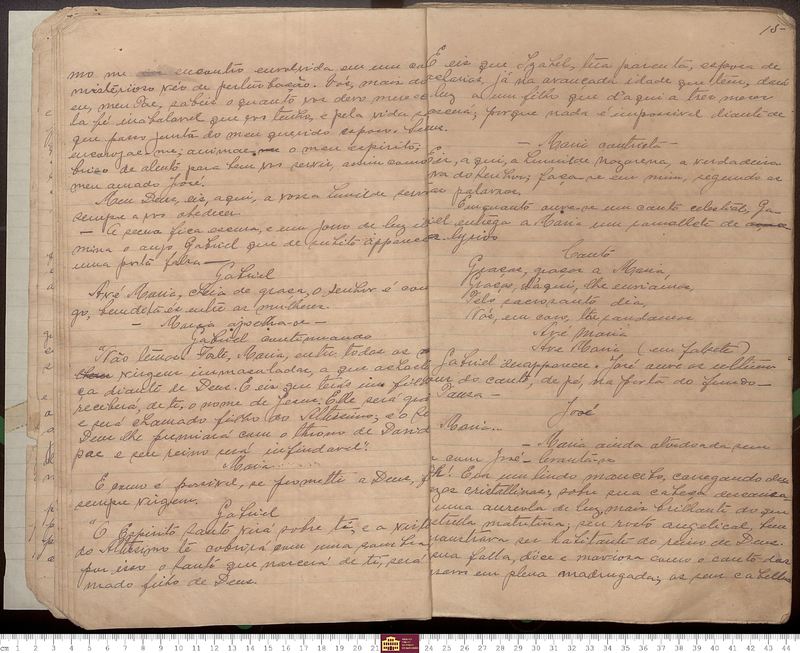 mo me encontro envolvida em um ca
misterioso véo de perturbação. Vós, mais do
eu, meu Pae, sabeis o quanto vos devo
la fé inabalavel que vos tenho, e pela vida
que passo junto do meu querido esposo. Deus
encorajae-me; animae o meu espirito;
de alento para bem vos servir, assim como
meu amado José.
Meu Deus, eis, aqui, a vossa humilde
sempre a vos obedecer.
— A scena fica escura, e um jorro de luz
mina o anjo Gabriel que de subito apparece
uma porta falsa —
Gabriel
Avé Maria, cheia de graça, o senhor é com
go, bemdita és entre as mulheres.
— Maria ajoelha-se —
Gabriel continuando
"Não temas! Foste, Maria, entre todas as
virgem immaculadas, a que achaste
ça diante de Deus. E eis que terás um filho
receberá, de ti, o nome de Jesus. Elle será
e será chamado filho do Altissimo; e o
Deus lhe premiará com o throno de David
pae e seu reino será infindavel".
Maria
E como é possivel, se prometti a Deus,
sempre virgem.
Gabriel
"O Espirito Santo virá sobre ti, e a
do Altissimo te cobrirá com uma sombra
por isso o santo que nascerá de ti, será
mado filho de Deus.
15
E eis que Izabel, tua parenta, esposa de
acharias, já na avançada idade que tem, dará
luz a um filho que d'aqui a tres mezes
porque nada é impossivel diante de
Deus.
— Maria contricta —
Eis, aqui, a humilde Nazarena, a verdadeira
va do Senhor; faça-se em mim, segundo as
palavras.
Emquanto ouve-se um canto celestial, Ga-
iel entrega a Maria um ramalhete de
lyrios
Canto
Graças, graças a Maria,
Graças, d'aqui, lhe enviamos,
Pelo sacrosanto dia,
Nós, em coro, the saudamos
Avé Maria
Ave Maria (em falsete)
Gabriel desapparece. José ouve os ultimos
do canto, de pé, na porta do fundo —
Pausa —
José
Maria...
— Maria ainda atordoada sem
com José — levanta-se
Ah! Era um lindo mancebo, carregando
azas cristallinas; sobre sua cabeça descança
uma aureola de luz, mais brilhante do que
estrella matutina; seu rosto angelical, bem
mostrava ser habitante do reino de Deus.
sua falla, dôce e maviosa como o canto das
em plena madrugada; os seus cabellos